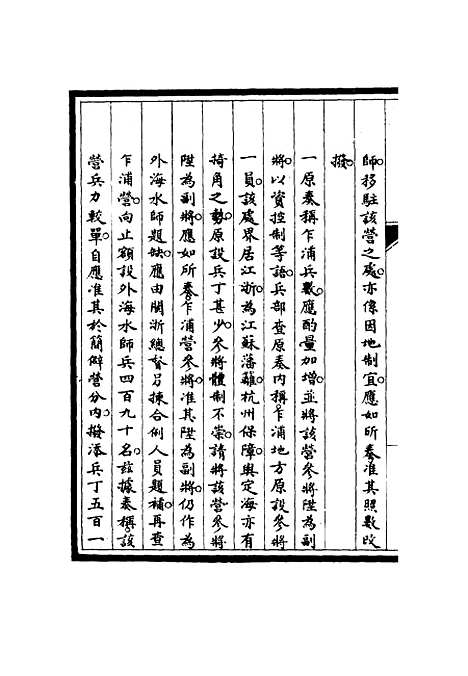 師。移駐該營之處。亦係因地制宜。應如所奏。准其照數改
撥。
一原奏稱乍浦兵數。應酌量加增。並將該營參將陞為副
將。以資控制等語。兵部查原奏內稱。乍浦地方原設參將
一員。該處界居江浙。為江蘇藩籬。杭州保障。與定海亦有
掎角之勢。原設兵丁甚少。參將體制不崇。請將該營參將
陞為副將。應如所奏。乍浦營參將准其陞為副將。仍作為
外海水師題缺。應由閩浙總督另揀合例人員題補。再查
乍浦營。向止額設外海水師兵四百九十名。茲據奏稱。該
營兵力較單。自應准其於簡僻營分內。撥添兵丁五百一